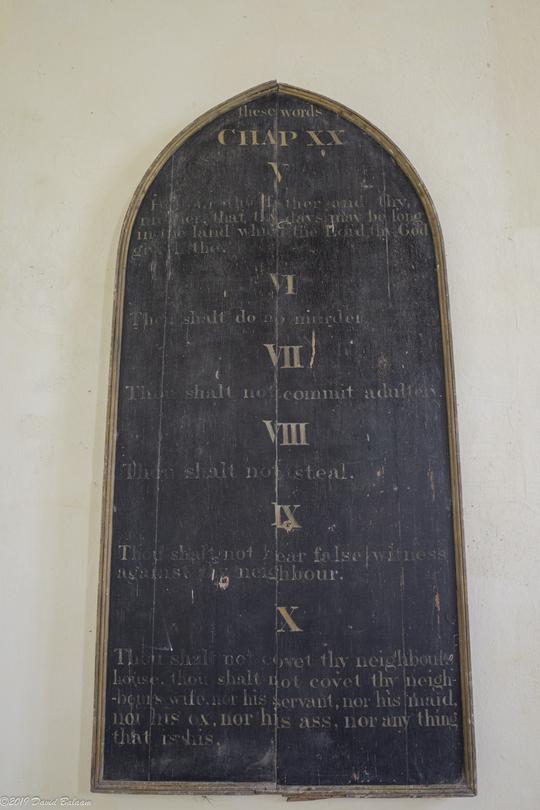 these words
CHAP XX
V
thy father and thy
mother, that thy days may be long
in the land which the Lord thy God
the.
VI
Thou shalt do no murder
VII
Thou shalt not commit adultery.
VIII
Thou shalt not steal.
IX
Thou shalt not bear false witness
against thy neighbour.
X
Thou shalt not covet thy neighbour's
house, thou shalt not covet thy neigh-
-bours wife, nor his servant, nor his maid,
nor his ox, nor his ass, nor any thing
that is his.
©2019 David Balaam